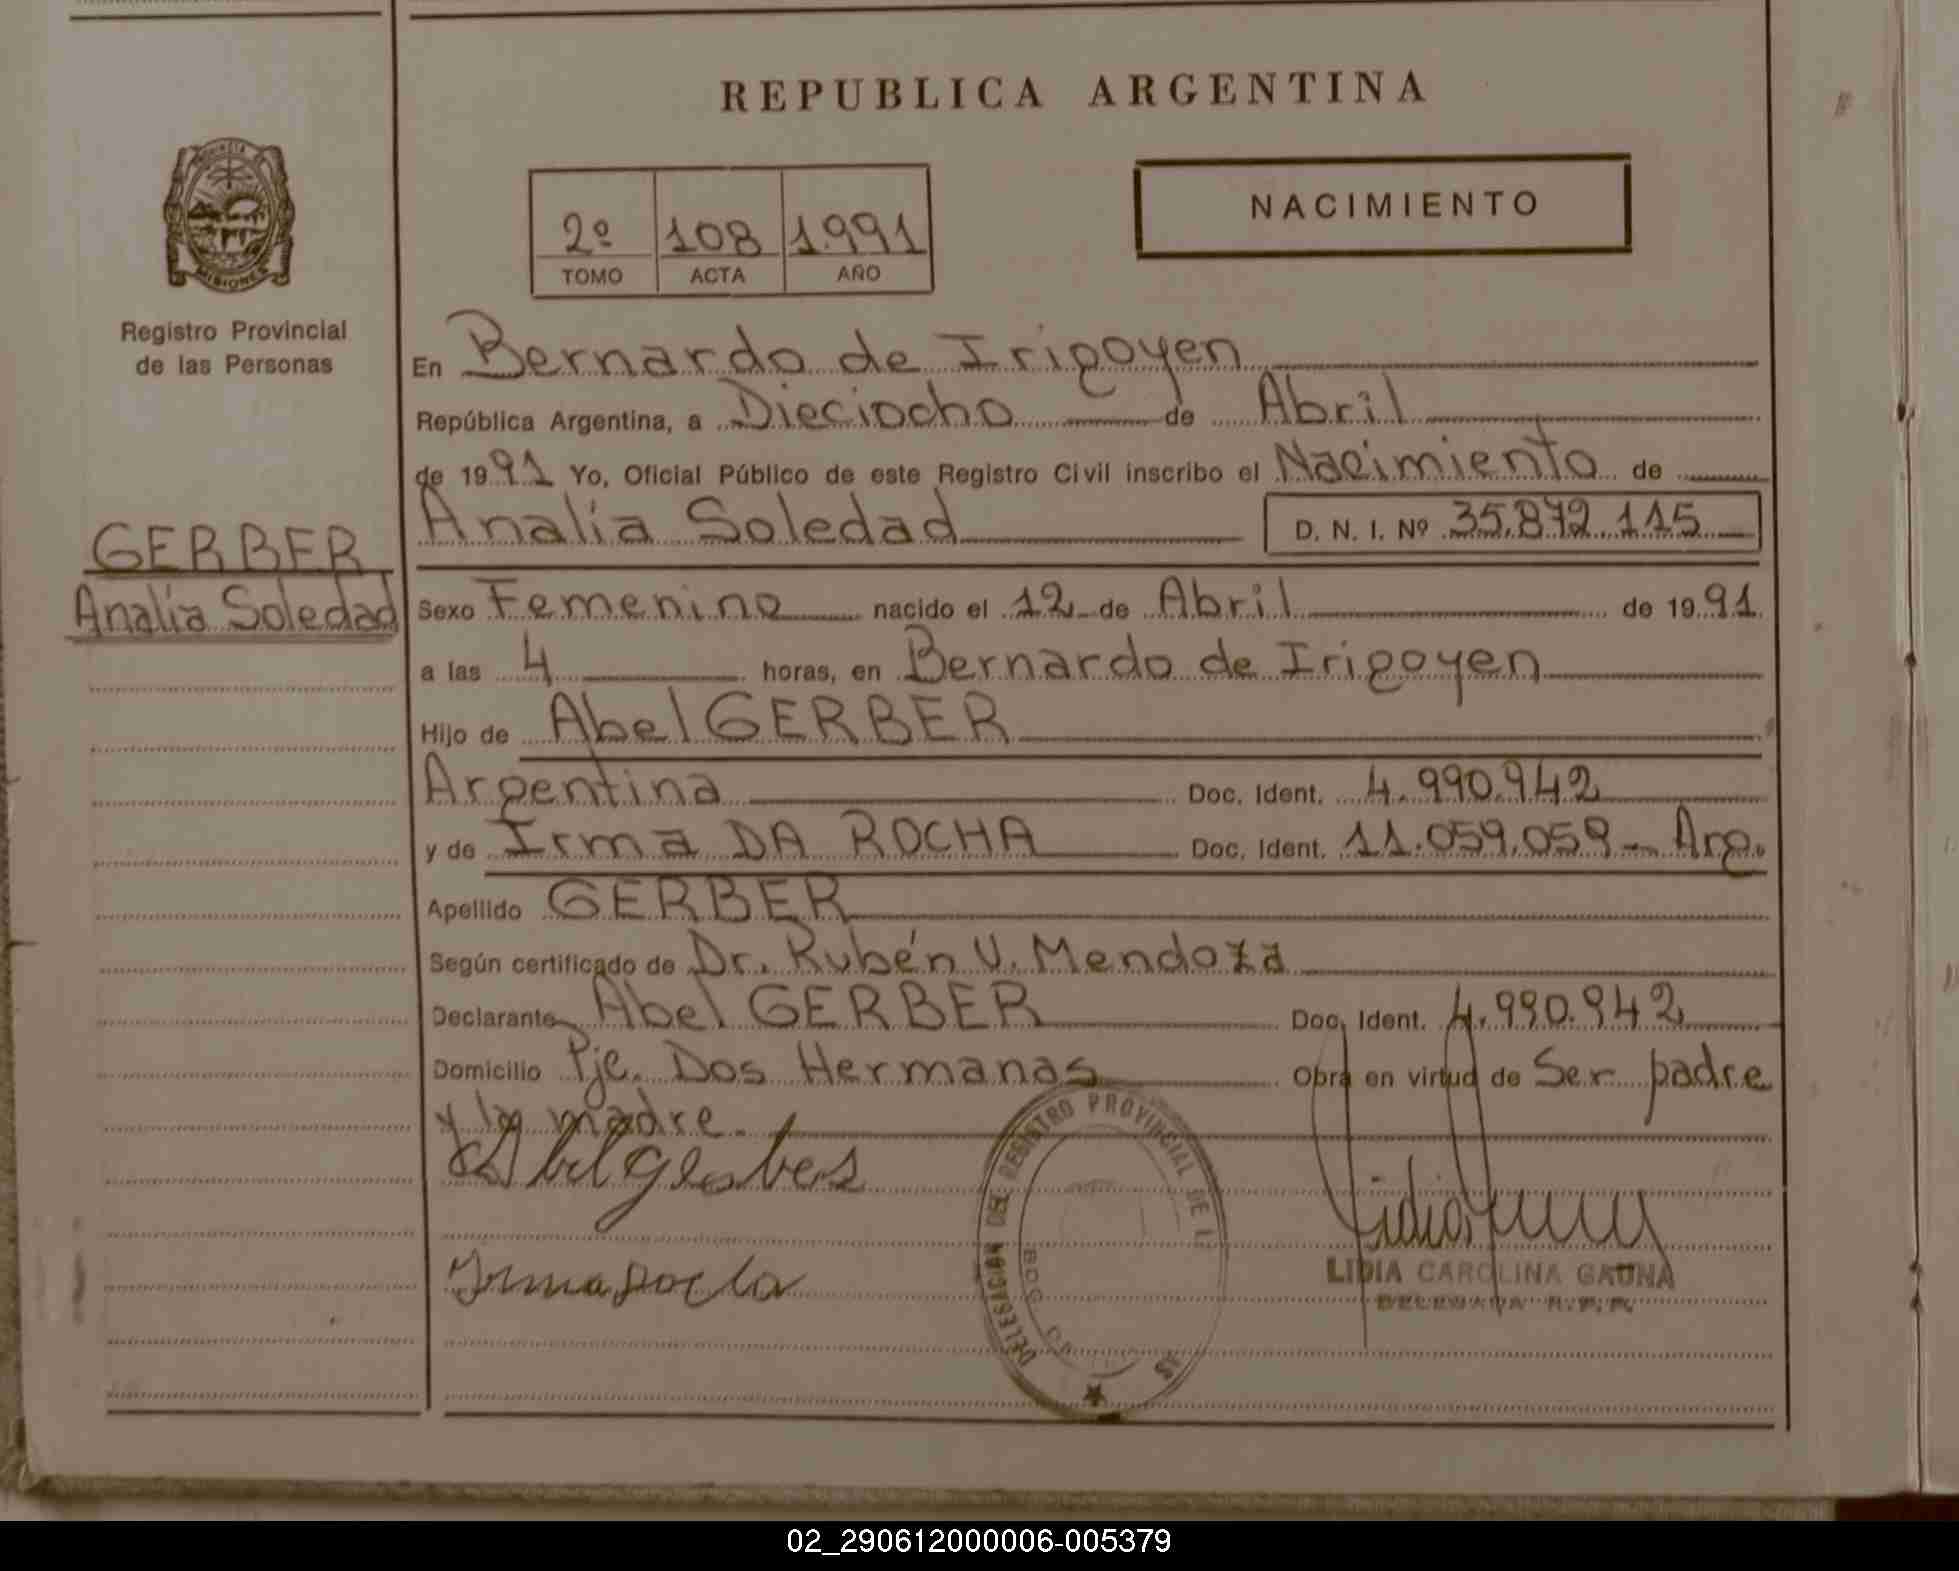 REPUBLICA ARGENTINA
PROVINCIA DE
MISIONES
Registro Provincial
de las Personas
2º 108 1991
TOMO ACTA AÑO
NACIMIENTO
En Bernardo de Irigoyen
República Argentina, a Dieciocho de Abril
de 1991 Yo, Oficial Público de este Registro Civil inscribo el Nacimiento de
Analía Soledad D. N. I. Nº 35.872.115
GERBER
Analía Soledad
Sexo Femenino nacido el 12 de Abril de 1991
a las 4 horas, en Bernardo de Irigoyen
Hijo de Abel GERBER
Argentina Doc. Ident. 4.990.942
y de Irma DA ROCHA Doc. Ident. 11.059.059 - Arg.
Apellido GERBER
Según certificado de Dr. Rubén V. Mendoza
Declarante Abel GERBER Doc. Ident. 4.990.942
Domicilio Pje. Dos Hermanas Obra en virtud de Ser padre
y la madre.
Abel Gerber
Irma Rocha
DELEGACION DEL REGISTRO PROVINCIAL DE L
LIDIA CAROLINA GAUNA
DELEGADA R.P.P.
02_290612000006-005379